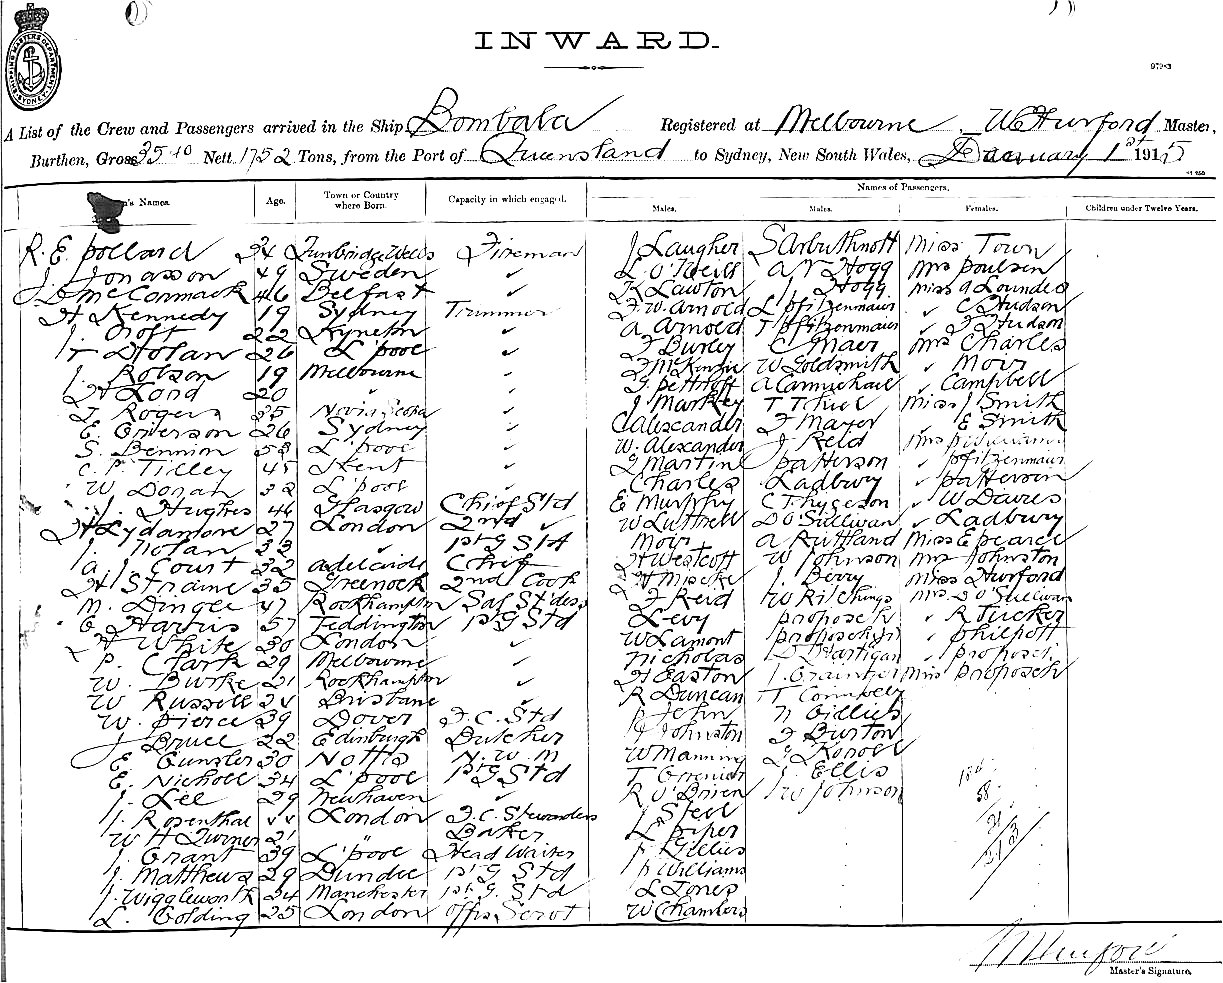 INWARD.
A List of the Crew and Passengers arrived in the Ship Bombala Registered at Melbourne, W Hurford Master,
Burthen, Gross 3540 Nett 1752 Tons, from the Port of Queensland to Sydney, New South Wales, January 1st 1915
Names of Passengers.
's Names. Age. Town or Country where Born. Capacity in which engaged. Males. Males. Females. Children under Twelve Years.
R. E. Pollard 24 Tunbridge Wells Fireman J Laugher S Arbuthnott Miss Town
J. Jonasson 49 Sweden ✓ L O'Neill A N Hogg Mrs Poulsen
J. D McCormack 46 Belfast ✓ K Lawton J Hogg Miss A Lounded
H Kennedy 19 Sydney Trimmer F. W. Arnold L Pfitzenmaier ✓ C Hudson
J. Croft 22 Kyneton ✓ A Arnold T Pfitzenmaier ✓ J Hudson
T Dolan 26 L'pool ✓ F Burley C Maer Mrs Charles
J. Robson 19 Melbourne ✓ F McKenzie W Goldsmith ✓ Moir
H Lond 20 " ✓ G Pethoff A Carmichael ✓ Campbell
F Rogers 25 Novia Scotia ✓ J Markley T Thiel Miss J Smith
E. Emerson 26 Sydney ✓ C Alexander F Mayer ✓ E Smith
S. Bennion 58 L'pool ✓ W. Alexander J Reid Mrs P Williams
C. P. Tilley 45 Kent ✓ G Martin Patterson ✓ Pfitzenmaier
W Doran 32 L'pool ✓ Charles Ladbury ✓ Patterson
J. Hughes 46 Glasgow Chief Std E Murphy C Thygeson ✓ W Davies
H Lydamore 27 London 2nd ✓ W Luttrell D O'Sullivan ✓ Ladbury
J. Nolan 33 ✓ 1st G Std Moir A Rutland Miss E Pearce
A J Court 32 Adelaide Chief H Westcott W Johnson Mrs Johnston
H Straine 35 Greenock 2nd Cook H Miscke J. Berry Miss Hurford
M. Dingle 47 Rockhampton Sal Stdess F Reid W Ritchings Mrs D O'Sullivan
C Harris 57 Teddington 1st G Std Levy Proposch ✓ R Tucker
H White 30 London ✓ W Lamont Proposch Jr ✓ Philpott
P. Clark 29 Melbourne ✓ Nicholas D Hartigan ✓ Proposch
W. Burke 21 Rockhampton ✓ H Easton J. Grainger Mrs Proposch
W Russell 24 Brisbane ✓ R Duncan T Connelly
W. Pierce 39 Dover F. C. Std P Jehn N Gillies
J Bruce 22 Edinburgh Butcher J Johnston F Burton
E Gunsler 30 Notts N. W. M W Manning G Konoel
E. Nicholl 34 L'pool 1st G Std T Greenish J. Ellis 134
J. Lee 29 Newhaven ✓ R O'Brien W Johnson 58
J. Rosenthal 44 London F. C. Stewardess J Steel 21
W H Turner 21 " Baker L Piper 213
J. Grant 39 L'pool Head Waiter F Gillies
J. Matthews 29 Dundee 1st G Std P Williams
J. Wigglesworth 34 Manchester 1st G. Std L Jones
L. Golding 25 London Offrs Servt W Chambers
W Hurford
Master's Signature.
SHIPPING MASTERS DEPARTMENT SYDNEY